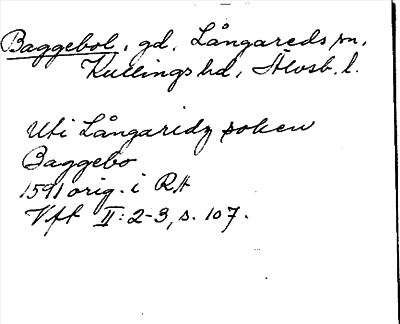 Baggebol, gd, Långareds sn,
Kullings hd, Älvsb. l.
Uti Långaridz soken
Baggebo
1591 orig. i RA
Vft II: 2-3, s. 107.